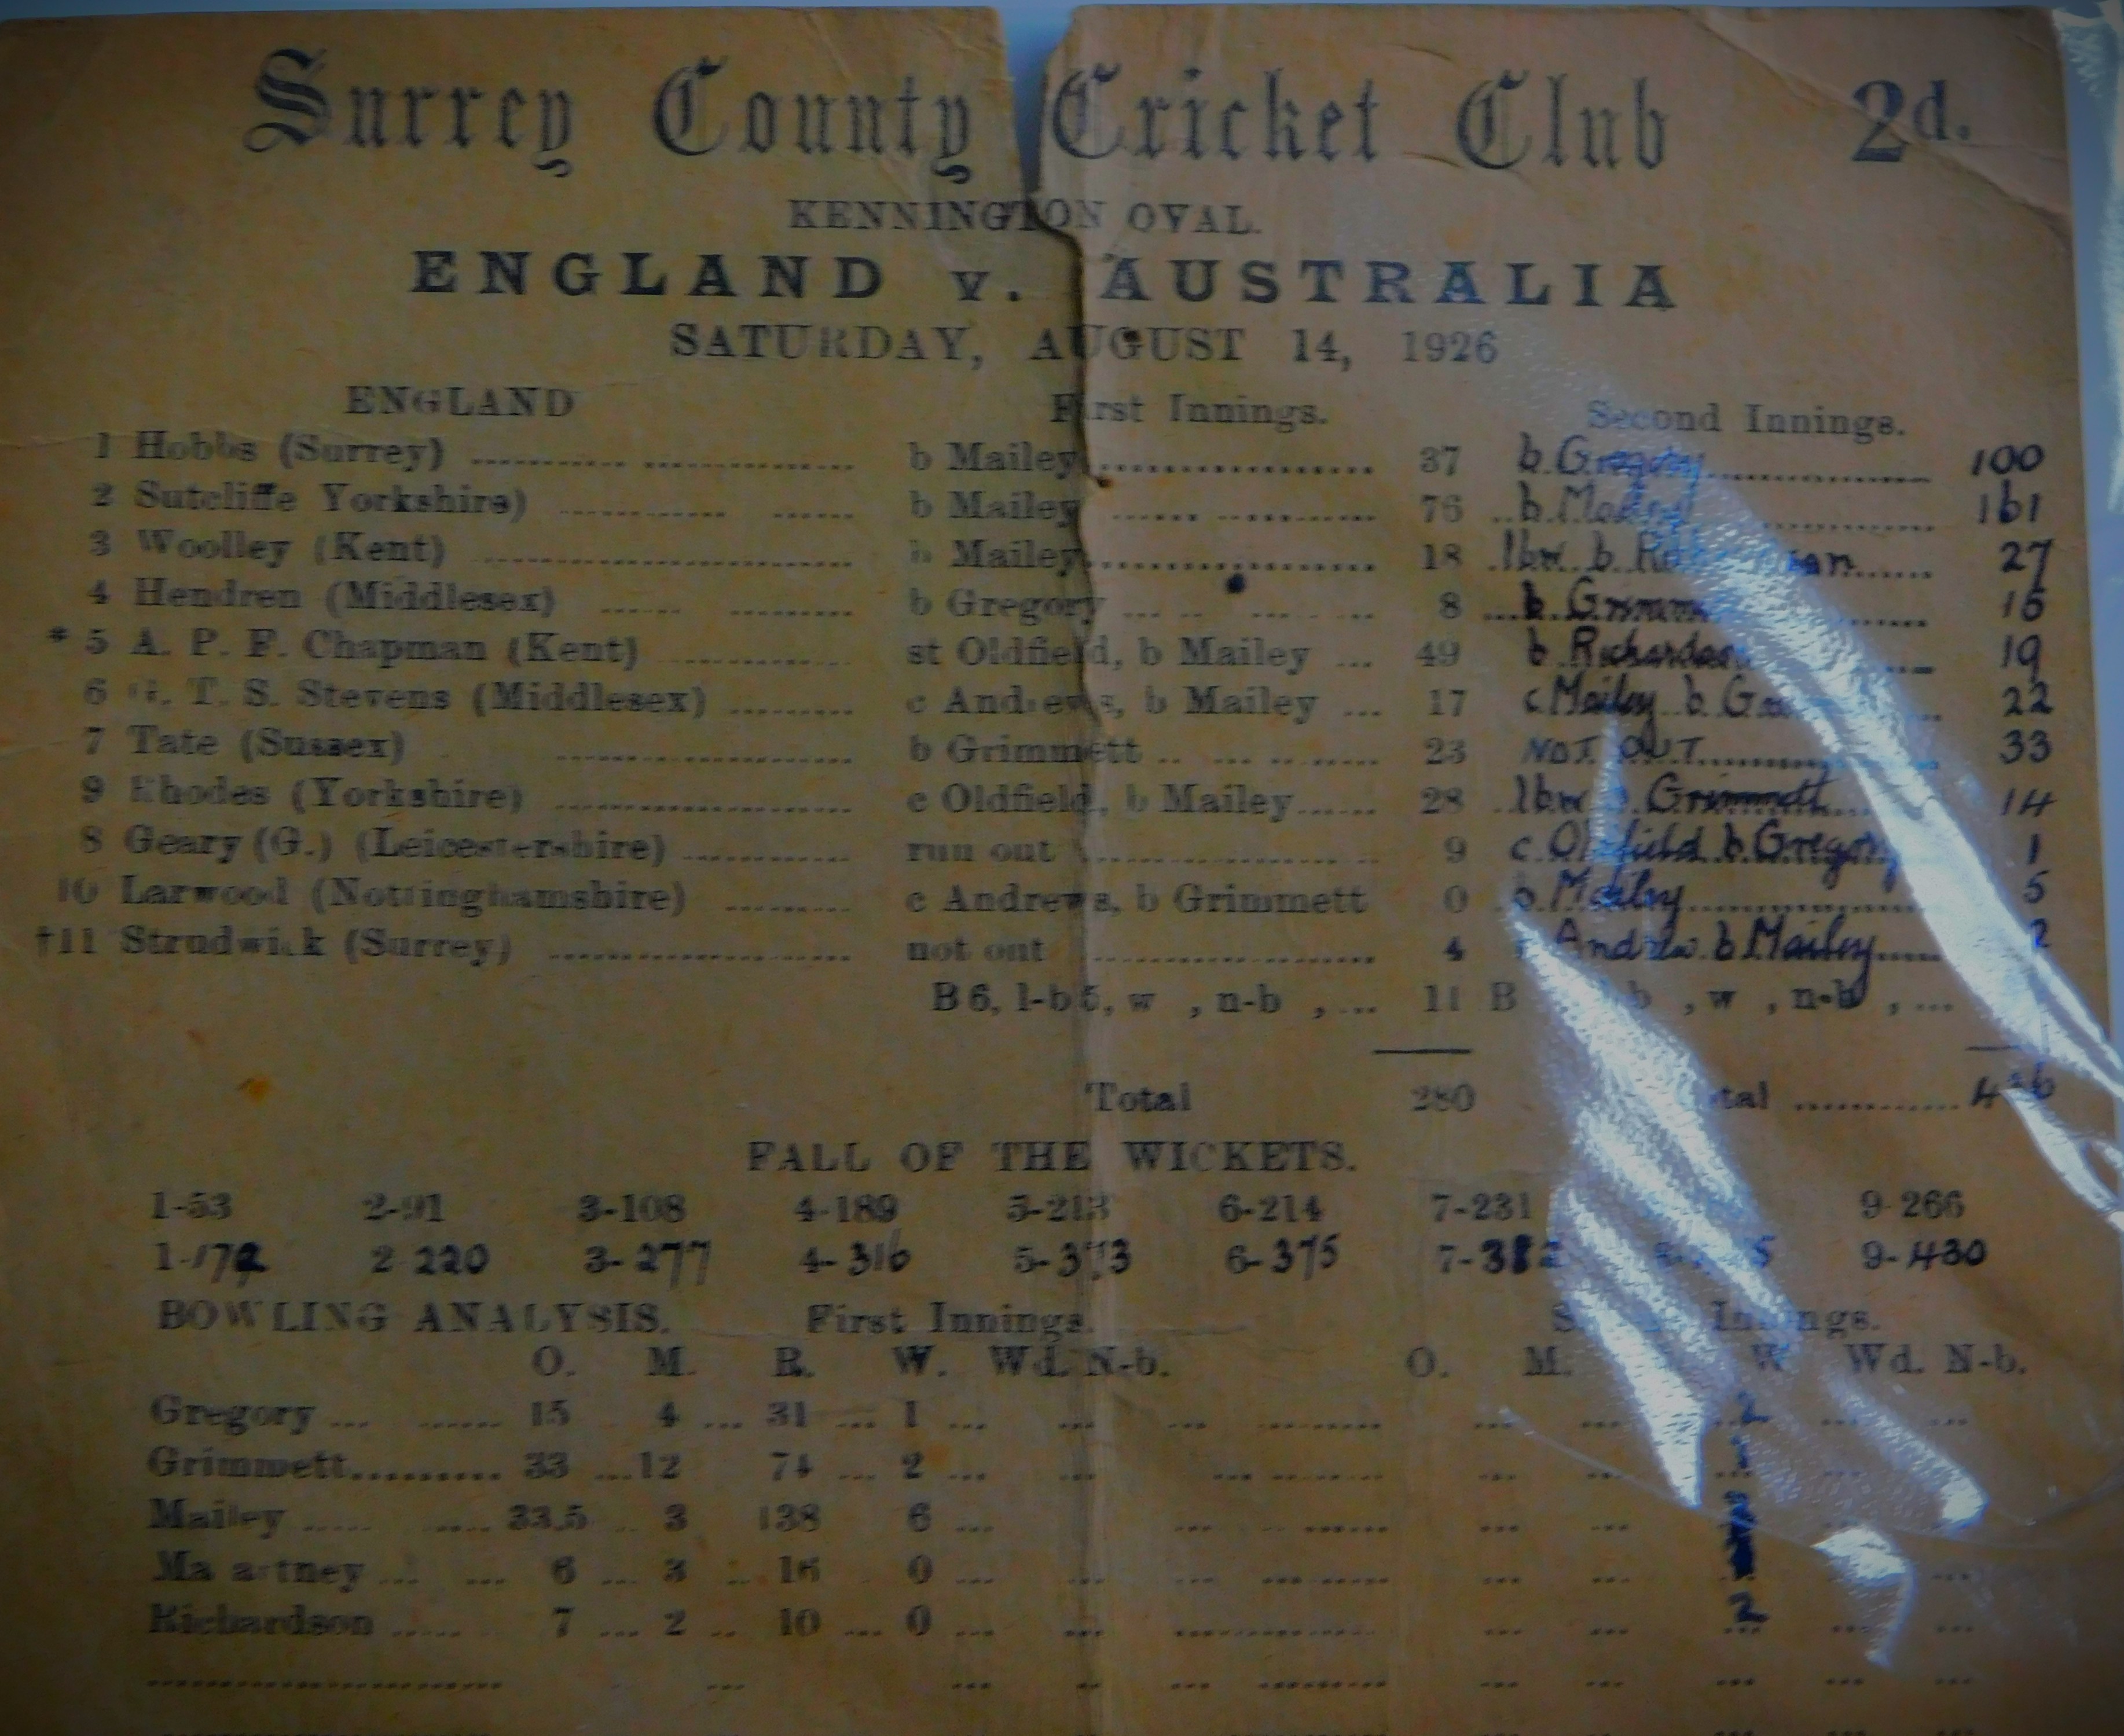 Surrey County Cricket Club 2d.
KENNINGTON OVAL.
ENGLAND v. AUSTRALIA
SATURDAY, AUGUST 14, 1926
ENGLAND First Innings. Second Innings.
1 Hobbs (Surrey) b Mailey 37 b Gregory 100
2 Sutcliffe Yorkshire) b Mailey 76 b Mailey 161
3 Woolley (Kent) b Mailey 18 lbw b 27
4 Hendren (Middlesex) b Gregory 8 b 15
* 5 A. P. F. Chapman (Kent) st Oldfield, b Mailey ... 49 b Richardson 19
6 G. T. S. Stevens (Middlesex) c Andrews, b Mailey ... 17 c Mailey b 22
7 Tate (Sussex) b Grimmett 23 NOT OUT 33
9 Rhodes (Yorkshire) c Oldfield, b Mailey 28 lbw b Grimmett 14
8 Geary (G.) (Leicestershire) run out 9 c Oldfield b Gregory 1
10 Larwood (Nottinghamshire) c Andrews, b Grimmett 0 b Mailey 5
†11 Strudwick (Surrey) not out 4 Andrew b Mailey 2
B 6, l-b 5, w , n-b , ... 11 B , w , n-b , ...
Total 280 Total
FALL OF THE WICKETS.
1-53 2-91 3-108 4-189 5-213 6-214 7-231 9-266
1-172 2-220 3-277 4-316 5-373 6-375 7-382 9-430
BOWLING ANALYSIS. First Innings. Second Innings.
O. M. R. W. Wd. N-b. O. M. W Wd. N-b.
Gregory 15 4 31 1 2
Grimmett 33 12 74 2
Mailey 33.5 3 138 6
Macartney 6 3 16 0
Richardson 7 2 10 0 2